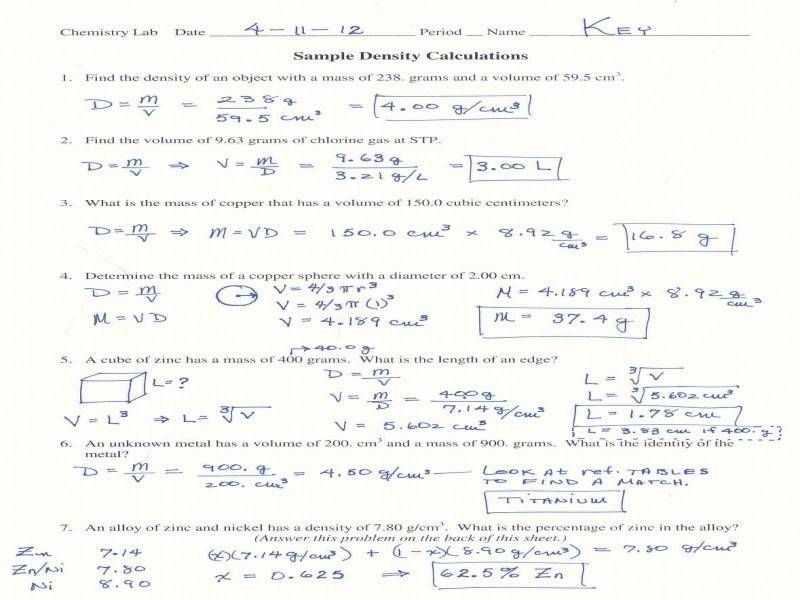 Chemistry Lab Date 4-11-12 Period __ Name KEY
Sample Density Calculations
1. Find the density of an object with a mass of 238. grams and a volume of 59.5 cm³.
D = m/V = 238 g / 59.5 cm³ = 4.00 g/cm³
2. Find the volume of 9.63 grams of chlorine gas at STP.
D = m/V ⇒ V = m/D = 9.63 g / 3.21 g/L = 3.00 L
3. What is the mass of copper that has a volume of 150.0 cubic centimeters?
D = m/V ⇒ M = VD = 150.0 cm³ × 8.92 g/cm³ = 16.8 g
4. Determine the mass of a copper sphere with a diameter of 2.00 cm.
D = m/V V = 4/3 π r³ M = 4.189 cm³ × 8.92 g/cm³
V = 4/3 π (1)³
M = VD V = 4.189 cm³ M = 37.4 g
→ 40.0 g
5. A cube of zinc has a mass of 400 grams. What is the length of an edge?
L = ? D = m/V L = ∛V
V = m/D = 400 g / 7.14 g/cm³ L = ∛5.602 cm³
V = L³ ⇒ L = ∛V V = 5.602 cm³ L = 1.78 cm
L = 3.83 cm if 400. g
6. An unknown metal has a volume of 200. cm³ and a mass of 900. grams. What is the identity of the
metal?
D = m/V = 900. g / 200. cm³ = 4.50 g/cm³ — LOOK AT ref. TABLES
TO FIND A MATCH.
TITANIUM
7. An alloy of zinc and nickel has a density of 7.80 g/cm³. What is the percentage of zinc in the alloy?
(Answer this problem on the back of this sheet.)
Zn 7.14 (x)(7.14 g/cm³) + (1-x)(8.90 g/cm³) = 7.80 g/cm³
Zn/Ni 7.80 x = 0.625 ⇒ 62.5% Zn
Ni 8.90